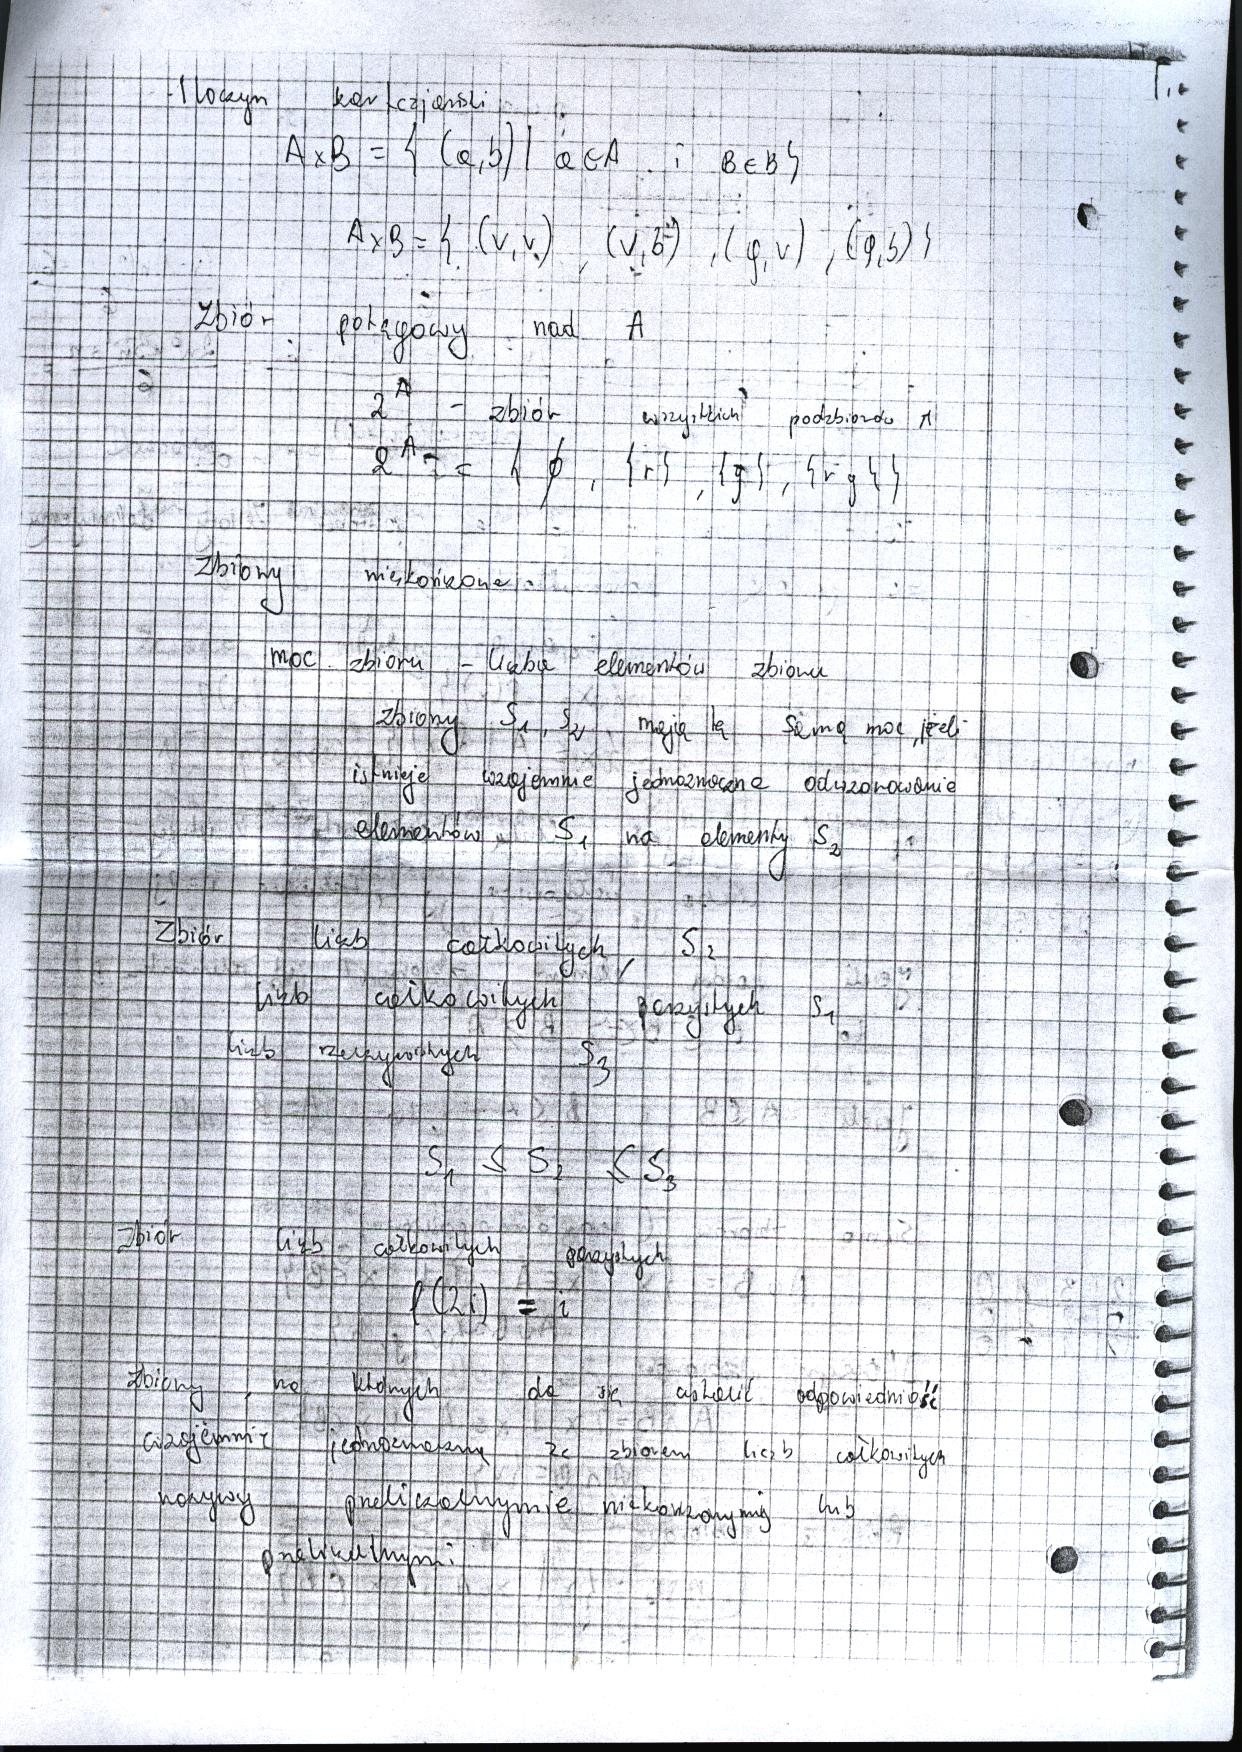 Iloczyn kartezjański
A×B = { (a,b) | a∈A i B∈B}
A×B = { (v,v) , (v,b) , (g,v) , (g,b) }
Zbiór potęgowy nad A
2^A - zbiór wszystkich podzbiorów A
2^A = { ∅ , {r} , {g} , {r g} }
Zbiory nieskończone
moc zbioru - liczba elementów zbioru
zbiory S₁, S₂ mają tą samą moc, jeżeli
istnieje wzajemnie jednoznaczne odwzorowanie
elementów S₁ na elementy S₂
Zbiór liczb całkowitych, S₂
liczb całkowitych parzystych S₁
liczb rzeczywistych S₃
S₁ ≤ S₂ < S₃
Zbiór liczb całkowitych parzystych
f(2i) = i
Zbiory, na których da się ustalić odpowiedniość
wzajemnie jednoznaczną ze zbiorem liczb całkowitych
nazywy przeliczalnymie nieskończonymi lub
przeliczalnymi